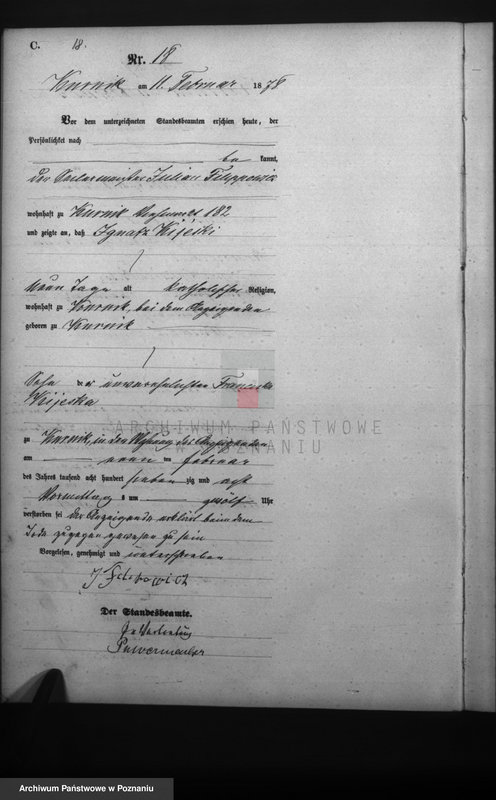 C. 18.
Nr. 18
Kurnik am 11. Februar 1878
Vor dem unterzeichneten Standesbeamten erschien heute, der
Persönlichkeit nach
be kannt,
der Julian
wohnhaft zu Kurnik 182
und zeigte an, daß Ignatz Kijeski
neun Tage alt katholischer Religion,
wohnhaft zu Kurnik, bei dem Anzeigenden
geboren zu Kurnik
Sohn der unverehelichten Franciska
Kijeska
ARCHIWUM PAŃSTWOWE
W POZNANIU
zu Kurnik, in der Wohnung des Anzeigenden
am neun ten Februar
des Jahres tausend acht hundert sieben zig und acht
Vormittag s um zwölf Uhr
verstorben sei der Anzeigende erklärt beim dem
Tode zugegen gewesen zu sein
Vorgelesen, genehmigt und unterschrieben
Der Standesbeamte.
In Vertretung
Archiwum Państwowe w Poznaniu